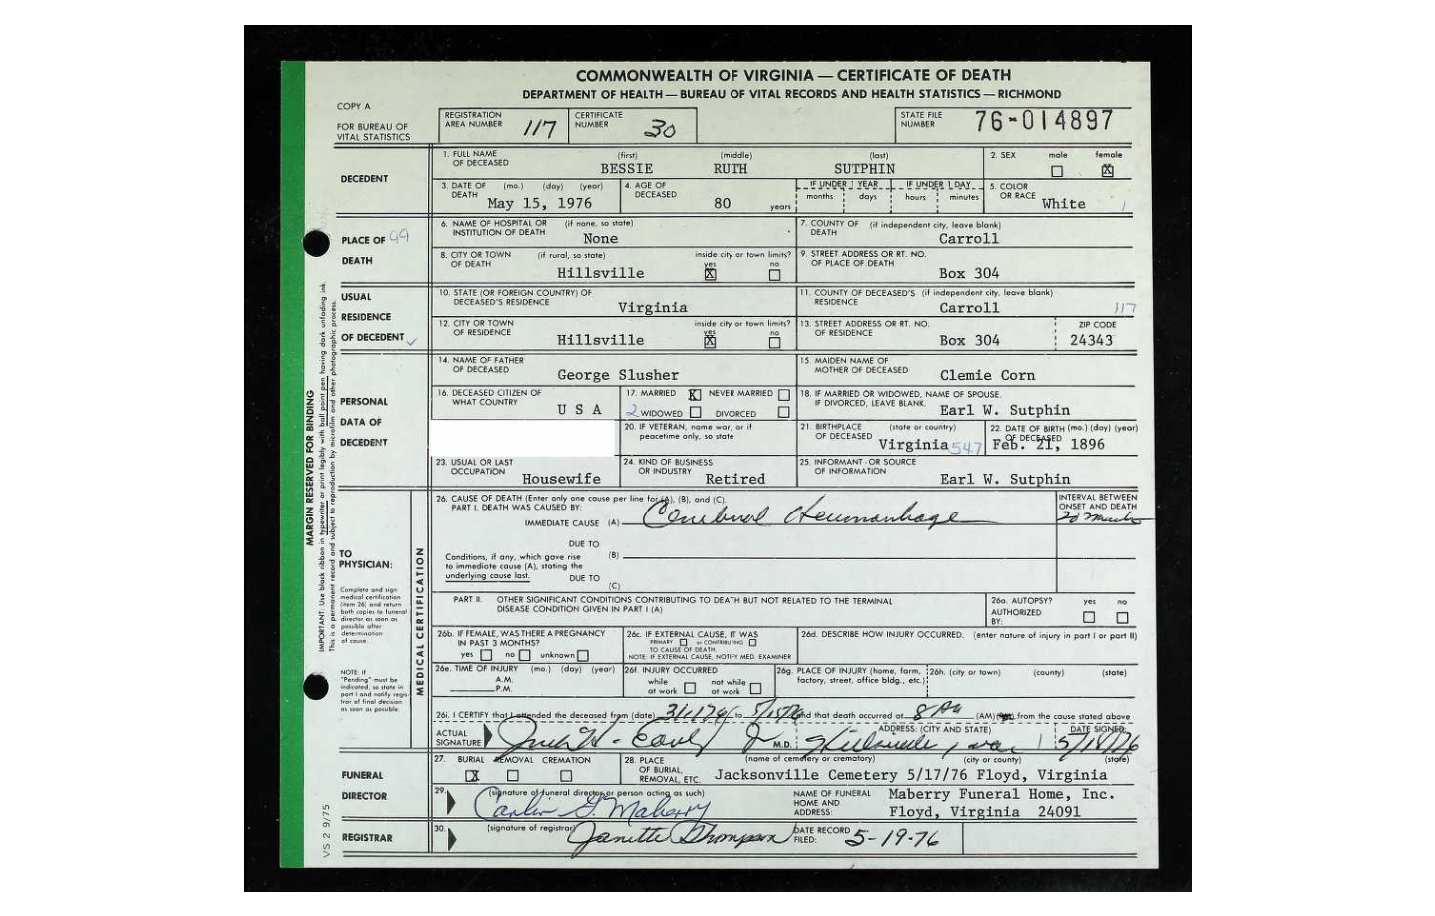 COMMONWEALTH OF VIRGINIA — CERTIFICATE OF DEATH
DEPARTMENT OF HEALTH — BUREAU OF VITAL RECORDS AND HEALTH STATISTICS — RICHMOND
COPY A
FOR BUREAU OF
VITAL STATISTICS
REGISTRATION
AREA NUMBER 117
CERTIFICATE
NUMBER 30
STATE FILE
NUMBER 76-014897
DECEDENT
1. FULL NAME
OF DECEASED
(first) (middle) (last)
BESSIE RUTH SUTPHIN
2. SEX male female X
3. DATE OF (mo.) (day) (year)
DEATH May 15, 1976
4. AGE OF
DECEASED 80 years
IF UNDER 1 YEAR IF UNDER 1 DAY
months days hours minutes
5. COLOR
OR RACE White
PLACE OF 99
DEATH
6. NAME OF HOSPITAL OR (if none, so state)
INSTITUTION OF DEATH None
7. COUNTY OF (if independent city, leave blank)
DEATH Carroll
8. CITY OR TOWN (if rural, so state)
OF DEATH Hillsville
inside city or town limits?
yes X no
9. STREET ADDRESS OR RT. NO.
OF PLACE OF DEATH Box 304
USUAL
RESIDENCE
OF DECEDENT
10. STATE (OR FOREIGN COUNTRY) OF
DECEASED'S RESIDENCE Virginia
11. COUNTY OF DECEASED'S (if independent city, leave blank)
RESIDENCE Carroll 117
12. CITY OR TOWN
OF RESIDENCE Hillsville
inside city or town limits?
yes X no
13. STREET ADDRESS OR RT. NO.
OF RESIDENCE Box 304
ZIP CODE
24343
PERSONAL
DATA OF
DECEDENT
14. NAME OF FATHER
OF DECEASED George Slusher
15. MAIDEN NAME OF
MOTHER OF DECEASED Clemie Corn
16. DECEASED CITIZEN OF
WHAT COUNTRY U S A
17. MARRIED X NEVER MARRIED
2 WIDOWED DIVORCED
18. IF MARRIED OR WIDOWED, NAME OF SPOUSE.
IF DIVORCED, LEAVE BLANK. Earl W. Sutphin
20. IF VETERAN, name war, or if
peacetime only, so state
21. BIRTHPLACE (state or country)
OF DECEASED Virginia 547
22. DATE OF BIRTH (mo.) (day) (year)
OF DECEASED Feb. 21, 1896
23. USUAL OR LAST
OCCUPATION Housewife
24. KIND OF BUSINESS
OR INDUSTRY Retired
25. INFORMANT - OR SOURCE
OF INFORMATION Earl W. Sutphin
MARGIN RESERVED FOR BINDING
IMPORTANT: Use black ribbon in typewriter or print legibly with ball point pen having dark unfading ink.
This is a permanent record and subject to reproduction by microfilm and other photographic process.
TO
PHYSICIAN:
Complete and sign
medical certification
(item 26) and return
both copies to funeral
director as soon as
possible after
determination
of cause.
NOTE: If
"Pending" must be
indicated, so state in
part I and notify regis-
trar of final decision
as soon as possible.
MEDICAL CERTIFICATION
26. CAUSE OF DEATH (Enter only one cause per line for (A), (B), and (C).
PART I. DEATH WAS CAUSED BY:
IMMEDIATE CAUSE (A) Cerebral Hemorrhage
INTERVAL BETWEEN
ONSET AND DEATH
DUE TO
Conditions, if any, which gave rise (B)
to immediate cause (A), stating the
underlying cause last. DUE TO
(C)
PART II. OTHER SIGNIFICANT CONDITIONS CONTRIBUTING TO DEATH BUT NOT RELATED TO THE TERMINAL
DISEASE CONDITION GIVEN IN PART I (A)
26a. AUTOPSY? yes no
AUTHORIZED
BY:
26b. IF FEMALE, WAS THERE A PREGNANCY
IN PAST 3 MONTHS?
yes no unknown
26c. IF EXTERNAL CAUSE, IT WAS
PRIMARY or CONTRIBUTING
TO CAUSE OF DEATH.
NOTE: IF EXTERNAL CAUSE, NOTIFY MED. EXAMINER
26d. DESCRIBE HOW INJURY OCCURRED. (enter nature of injury in part I or part II)
26e. TIME OF INJURY (mo.) (day) (year)
A.M.
P.M.
26f. INJURY OCCURRED
while not while
at work at work
26g. PLACE OF INJURY (home, farm,
factory, street, office bldg., etc.)
26h. (city or town) (county) (state)
26i. I CERTIFY that I attended the deceased from (date) to 5/15/76 and that death occurred at 8 AM (AM) from the cause stated above
ACTUAL
SIGNATURE M.D.
ADDRESS: (CITY AND STATE)
Hillsville
DATE SIGNED
5/18/76
FUNERAL
DIRECTOR
27. BURIAL REMOVAL CREMATION
X
28. PLACE (name of cemetery or crematory) (city or county) (state)
OF BURIAL,
REMOVAL, ETC. Jacksonville Cemetery 5/17/76 Floyd, Virginia
29. (signature of funeral director or person acting as such)
Carlin G. Maberry
NAME OF FUNERAL
HOME AND
ADDRESS:
Maberry Funeral Home, Inc.
Floyd, Virginia 24091
REGISTRAR
30. (signature of registrar)
Janette Thompson
DATE RECORD
FILED: 5-19-76
VS 2 9/75